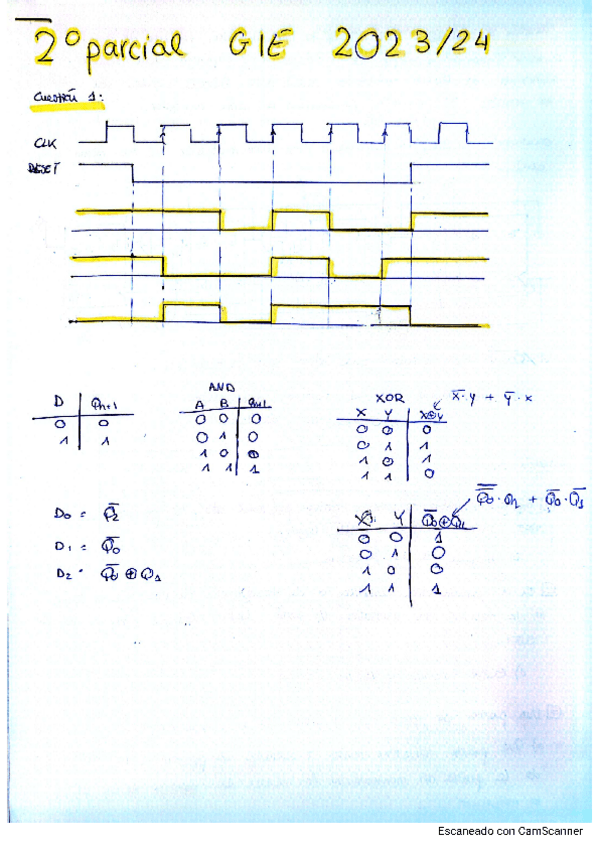 2º parcial GIE 2023/24
Cuestión 1:
CLK
RESET
D Qn+1
0 0
1 1
AND
A B Qn+1
0 0 0
0 1 0
1 0 0
1 1 1
XOR
X Y X⊕Y
X̅·y + y̅·x
0 0 0
0 1 1
1 0 1
1 1 0
D₀ = Q̅₂
D₁ = Q̅₀
D₂ = Q̅₀ ⊕ Q₁
Y Q̅₀⊕Q₁
0 0 1
0 1 0
1 0 0
1 1 1
Escaneado con CamScanner